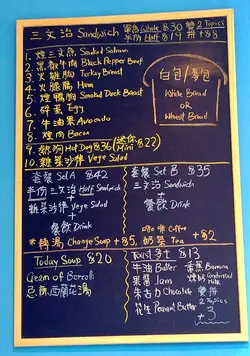 三文治 Sandwich 全份 Whole $30 雙 2 Topics
半份 Half $19 拼 +$8
1. 煙三文魚 Smoked Salmon
2. 黑椒牛肉 Black Pepper Beef
3. 火雞胸 Turkey Breast
4. 火腿 Ham
5. 煙鴨胸 Smoked Duck Breast
6. 碎蛋 Egg
7. 牛油果 Avocado
8. 煙肉 Bacon
9. 熱狗 Hot Dog $36 (迷你 Mini $22)
10. 雜菜沙律 Vege Salad
白包/麥包
White Bread
OR
Wheat Bread
套餐 Set A $42
半份三文治 Half Sandwich
+
雜菜沙律 Vege Salad
+
餐飲 Drink
套餐 Set B $35
三文治 Sandwich
+
餐飲 Drink
咖啡 Coffee
奶茶 Tea +$2
* 轉湯 Change Soup +$5,
Today Soup $20
Cream of Broccoli
忌廉西蘭花湯
Toast 多士 $13
牛油 Butter
果醬 Jam
朱古力 Chocolate
花生 Peanut Butter
香蕉 Banana
煉奶 Condensed Milk
雙拼
2 Topics
+3